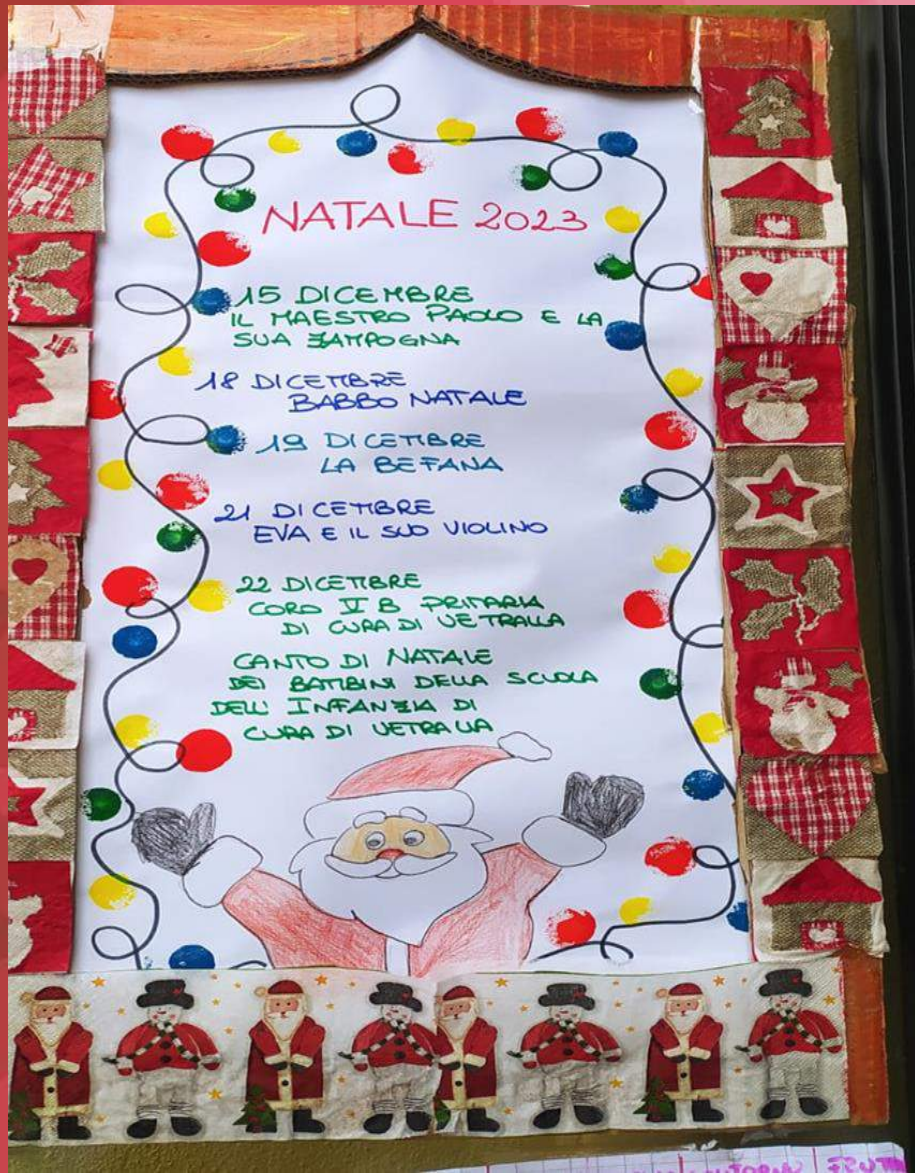 NATALE 2023
15 DICEMBRE
IL MAESTRO PAOLO E LA
SUA ZAMPOGNA
18 DICEMBRE
BABBO NATALE
19 DICEMBRE
LA BEFANA
21 DICEMBRE
EVA E IL SUO VIOLINO
22 DICEMBRE
CORO V B PRIMARIA
DI CURA DI VETRALLA
CANTO DI NATALE
DEI BAMBINI DELLA SCUOLA
DELL' INFANZIA DI
CURA DI VETRALLA